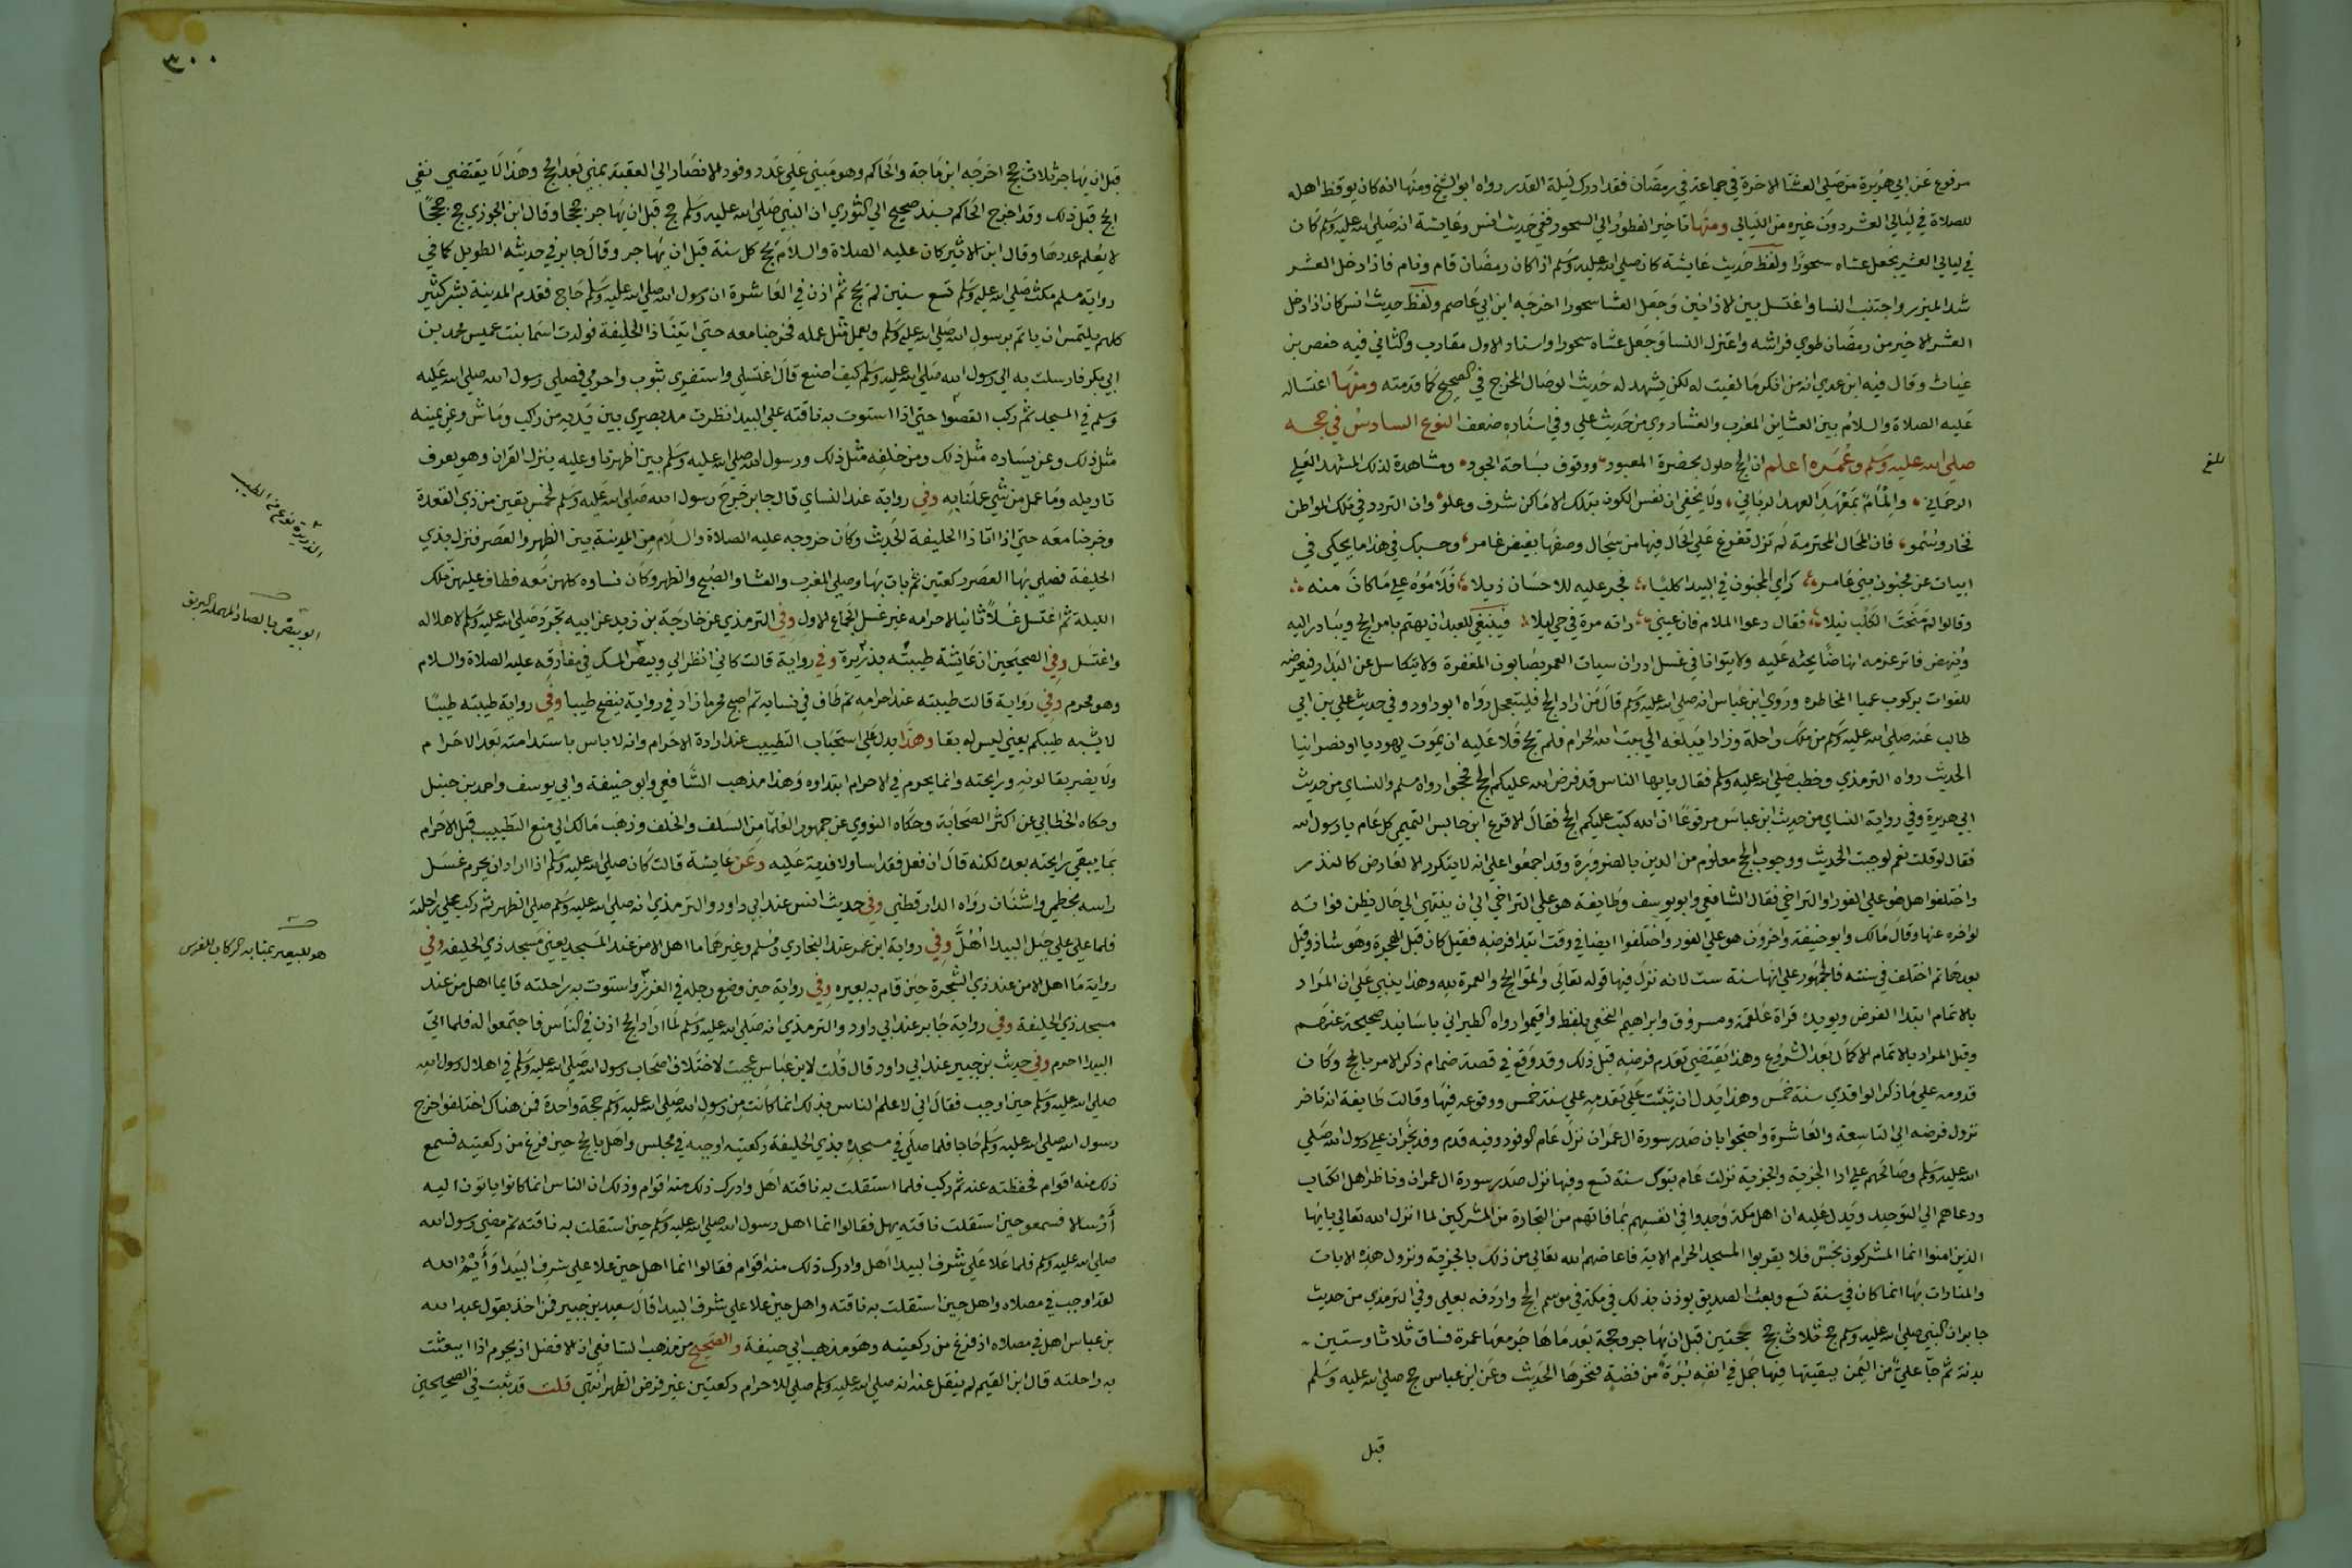 مرفوع عن ابي هريرة من صلي العشا الاخرة في جماعة في رمضان فقد ادرك ليلة القدر رواه ابو الشيخ ومنها انه كان يوقظ اهله
للصلاة في ليالي العشر دون غيره من الليالي ومنها تاخير الفطور الي السحور ففي حديث انس وعايشة انه صلي الله عليه وسلم كان
في ليالي العشر يجعل عشاه سحورا ولفظ حديث عايشة كان صلي الله عليه وسلم اذا كان رمضان قام ونام فاذا دخل العشر
شد الميزر واجتنب النسا واغتسل بين الاذانين وجعل العشا سحورا اخرجه ابن ابي عاصم ولفظ حديث انس كان اذا دخل
العشر الاخير من رمضان طوي فراشه واعتزل النسا وجعل عشاه سحورا واسناد الاول مقارب والثاني فيه حفص بن
غياث وقال فيه ابن عدي انه من انكر ما لقيت له لكن يشهد له حديث الوصال المخرج في الصحيح كما قدمته ومنها اغتساله
عليه الصلاة والسلام بين العشاين المغرب والعشا روي من حديث علي وفي اسناده ضعف النوع السادس في حجه
صلي الله عليه وسلم وعمره اعلم ان الحج حلول بحضرة المعبود ووقوف بساحة الجود ومشاهدة لذلك المشهد العلي
الرحماني والمام بمعهد العهد الرباني ولا يخفي ان نفس الكون بتلك الاماكن شرف وعلو وان التردد في تلك المواطن
فخار وسمو فان المحال المحترمة لم تزل تفرغ علي الحال فيها من سجال وصفها بفيض غامر وحسبك في هذا ما يحكي في
ابيات عن مجنون بني عامر راي المجنون في البيدا كلبا فجر عليه للاحسان ذيلا فلاموه علي ما كان منه
وقالوا لم منحت الكلب نيلا فقال دعوا الملام فان عيني راته مرة في حي ليلا فينبغي للعبد ان يهتم بامر الحج ويبادر اليه
وينهض فاتر عزمه انهاضا يحثه عليه ولا يتوانا في غسل ادران سيات العمر بصابون المغفرة ولا يتكاسل عن البدار فيعرضه
للفوات بركوب عميا المخاطره وروي ابن عباس انه صلي الله عليه وسلم قال من اراد الحج فليتعجل رواه ابو داود وفي حديث علي بن ابي
طالب عنه صلي الله عليه وسلم من ملك راحلة وزادا يبلغه الي بيت الله الحرام فلم يحج فلا عليه ان يموت يهوديا او نصرانيا
الحديث رواه الترمذي وخطب صلي الله عليه وسلم فقال يايها الناس قد فرض الله عليكم الحج فحجوا رواه مسلم والنساي من حديث
ابي هريرة وفي رواية النساي من حديث ابن عباس مرفوعا ان الله كتب عليكم الحج فقال الاقرع ابن حابس التميمي كل عام يا رسول الله
فقال لو قلت نعم لوجبت الحديث ووجوب الحج معلوم من الدين بالضرورة وقد اجمعوا علي انه لا يتكرر الا لعارض كالنذر
واختلفوا هل هو علي الفور او التراخي فقال الشافعي وابو يوسف وطايفة هو علي التراخي الي ان ينتهي الي حال يظن فواته
لو اخره عنها وقال مالك وابو حنيفة واخرون هو علي الفور واختلفوا ايضا في وقت ابتدا فرضه فقيل كان قبل الهجرة وهو شاذ وقيل
بعدها ثم اختلف في سنته فالجمهور علي انها سنة ست لانه نزل فيها قوله تعالي واتموا الحج والعمرة لله وهذا ينبني علي ان المراد
بالاتمام ابتدا الفرض ويويده قراة علقمة ومسروق وابراهيم النخعي بلفظ واقيموا رواه الطبراني باسانيد صحيحة عنهم
وقيل المراد بالاتمام الاكمال بعد الشروع وهذا يقتضي تقدم فرضه قبل ذلك وقد وقع في قصة ضمام ذكر الامر بالحج وكان
قدومه علي ما ذكر الواقدي سنة خمس وهذا يدل ان ثبت علي تقدمه علي سنة خمس ووقوعه فيها وقالت طايفة انه تاخر
نزول فرضه الي التاسعة والعاشرة واحتجوا بان صدر سورة ال عمران نزل عام الوفود وفيه قدم وفد نجران علي رسول الله صلي
الله عليه وسلم وصالحهم علي ادا الجزية والجزية نزلت عام تبوك سنة تسع وفيها نزل صدر سورة ال عمران وناظر اهل الكتاب
ودعاهم الي التوحيد ويدل عليه ان اهل مكة وجدوا في انفسهم بما فاتهم من التجارة من المشركين لما انزل الله تعالي يايها
الذين امنوا انما المشركون نجس فلا يقربوا المسجد الحرام الاية فاعاضهم الله تعالي من ذلك بالجزية ونزول هذه الايات
والمنادات بها انما كان في سنة تسع وبعث الصديق يوذن بذلك في مكة في موسم الحج واردفه بعلي وفي الترمذي من حديث
جابر ان النبي صلي الله عليه وسلم حج ثلاث حجج حجتين قبل ان يهاجر وحجة بعد ما هاجر معها عمرة فساق ثلاثا وستين
بدنة ثم جا علي من اليمن ببقيتها فيها جمل في انفه برة من فضة فنحرها الحديث وعن ابن عباس حج صلي الله عليه وسلم
قبل
بلغ
٣٠٠
قبل ان يهاجر ثلاث حجج اخرجه ابن ماجة والحاكم وهو مبني علي عدد وفود الانصار الي العقبة بمني بعد الحج وهذا لا يقتضي نفي
الحج قبل ذلك وقد اخرج الحاكم بسند صحيح الي الثوري ان النبي صلي الله عليه وسلم حج قبل ان يهاجر حججا وقال ابن الجوزي حج حججا
لا يعلم عددها وقال ابن الاثير كان عليه الصلاة والسلام يحج كل سنة قبل ان يهاجر وقال جابر في حديثه الطويل كما في
رواية مسلم مكث صلي الله عليه وسلم تسع سنين لم يحج ثم اذن في العاشرة ان رسول الله صلي الله عليه وسلم حاج فقدم المدينة بشر كثير
كلهم يلتمس ان ياتم برسول الله صلي الله عليه وسلم ويعمل مثل عمله فخرجنا معه حتي اتينا ذا الحليفة فولدت اسما بنت عميس محمد بن
ابي بكر فارسلت به الي رسول الله صلي الله عليه وسلم كيف اصنع قال اغتسلي واستثفري بثوب واحرمي فصلي رسول الله صلي الله عليه
وسلم في المسجد ثم ركب القصوا حتي اذا استوت به ناقته علي البيدا نظرت مد بصري بين يديه من راكب وماش وعن يمينه
مثل ذلك وعن يساره مثل ذلك ومن خلفه مثل ذلك ورسول الله صلي الله عليه وسلم بين اظهرنا وعليه ينزل القران وهو يعرف
تاويله وما عمل من شي عملنا به وفي رواية عند النساي قال جابر خرج رسول الله صلي الله عليه وسلم لخمس بقين من ذي القعدة
وخرجنا معه حتي اذا اتا ذا الحليفة الحديث وكان خروجه عليه الصلاة والسلام من المدينة بين الظهر والعصر فنزل بذي
الحليفة فصلي بها العصر ركعتين ثم بات بها وصلي المغرب والعشا والصبح والظهر وكان نساوه كلهن معه فطاف عليهن تلك
الليلة ثم اغتسل غسلا ثانيا لاحرامه غير غسل الجماع الاول وفي الترمذي عن خارجة بن زيد عن ابيه تجرد صلي الله عليه وسلم لاهلاله
واغتسل وفي الصحيحين ان عايشة طيبته بذريرة وفي رواية قالت كاني انظر الي وبيص المسك في مفارقه عليه الصلاة والسلام
وهو محرم وفي رواية قالت طيبته عند احرامه ثم طاف في نسايه ثم اصبح محرما زاد في رواية ينضح طيبا وفي رواية طيبته طيبا
لا يشبه طيبكم يعني ليس له بقا وهذا يدل علي استحباب التطييب عند ارادة الاحرام وانه لا باس باستدامته بعد الاحرام
ولا يضر بقا لونه ورايحته وانما يحرم في الاحرام ابتداوه وهذا مذهب الشافعي وابو حنيفة وابي يوسف واحمد بن حنبل
وحكاه الخطابي عن اكثر الصحابة وحكاه النووي عن جمهور العلما من السلف والخلف وذهب مالك الي منع التطييب قبل الاحرام
بما يبقي رايحته بعده لكنه قال ان فعل فقد اسا ولا فدية عليه وعن عايشة قالت كان صلي الله عليه وسلم اذا اراد ان يحرم غسل
راسه بخطمي واشنان رواه الدارقطني وفي حديث انس عند ابي داود والترمذي انه صلي الله عليه وسلم صلي الظهر ثم ركب علي راحلته
فلما علي علي جبل البيدا اهل وفي رواية ابن عمر عند البخاري ومسلم وغيرهما ما اهل الا من عند المسجد يعني مسجد ذي الحليفة وفي
رواية ما اهل الا من عند ذي الشجرة حين قام به بعيره وفي رواية حين وضع رجله في الغرز واستوت به راحلته قايما اهل من عند
مسجد ذي الحليفة وفي رواية جابر عند ابي داود والترمذي انه صلي الله عليه وسلم لما اراد الحج اذن في الناس فاجتمعوا له فلما اتي
البيدا احرم وفي حديث بن جبير عند ابي داود قال قلت لابن عباس عجبت لاختلاف اصحاب رسول الله صلي الله عليه وسلم في اهلال رسول الله
صلي الله عليه وسلم حين اوجب فقال اني لاعلم الناس بذلك انما كانت من رسول الله صلي الله عليه وسلم حجة واحدة فمن هناك اختلفوا خرج
رسول الله صلي الله عليه وسلم حاجا فلما صلي في مسجده بذي الحليفة ركعتيه اوجبه في مجلس واهل بالحج حين فرغ من ركعتيه فسمع
ذلك منه اقوام فحفظته عنه ثم ركب فلما استقلت به ناقته اهل وادرك ذلك منه اقوام وذلك ان الناس انما كانوا ياتون اليه
أرسالا فسمعوه حين استقلت ناقته يهل فقالوا انما اهل رسول الله صلي الله عليه وسلم حين استقلت به ناقته ثم مضي رسول الله
صلي الله عليه وسلم فلما علا علي شرف البيدا اهل وادرك ذلك منه اقوام فقالوا انما اهل حين علا علي شرف البيدا وأيم الله
لقد اوجب في مصلاه واهل حين استقلت به ناقته واهل حين علا علي شرف البيدا قال سعيد بن جبير فمن اخذ بقول عبد الله
بن عباس اهل في مصلاه اذ فرغ من ركعتيه وهو مذهب ابي حنيفة والصحيح من مذهب الشافعي ان الافضل ان يحرم اذا انبعثت
به راحلته قال ابن القيم لم ينقل عنه انه صلي الله عليه وسلم صلي للاحرام ركعتين غير فرض الظهر انتهي قلت قد ثبت في الصحيحين
الذريرة نوع من الطيب
الوبيص بالصاد المهملة البريق
هو للبعير بمثابة الركاب للفرس